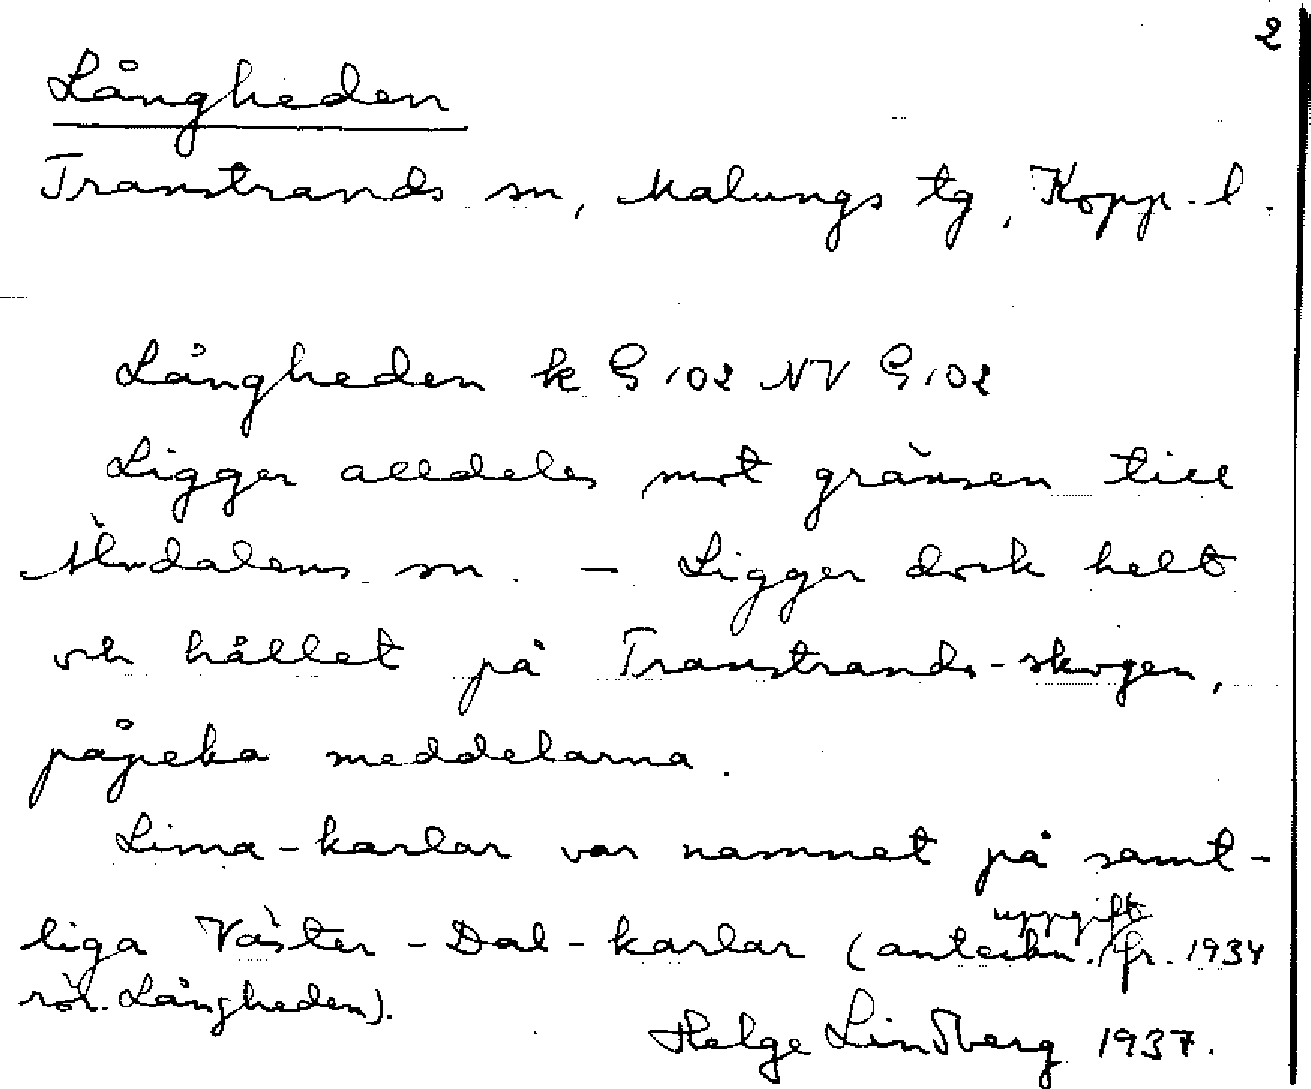 2
Långheden
Transtrands sn, Malungs tg, Kopp. l.
Långheden k G 102 NV G 102
Ligger alldeles mot gränsen till
Älvdalens sn. - Ligger dock helt
och hållet på Transtrands-skogen,
påpeka meddelarna.
Lima-karlar var namnet på samt-
liga Väster-Dal-karlar (anteckn. uppgift fr. 1934
rör. Långheden).
Helge Lindberg 1937.